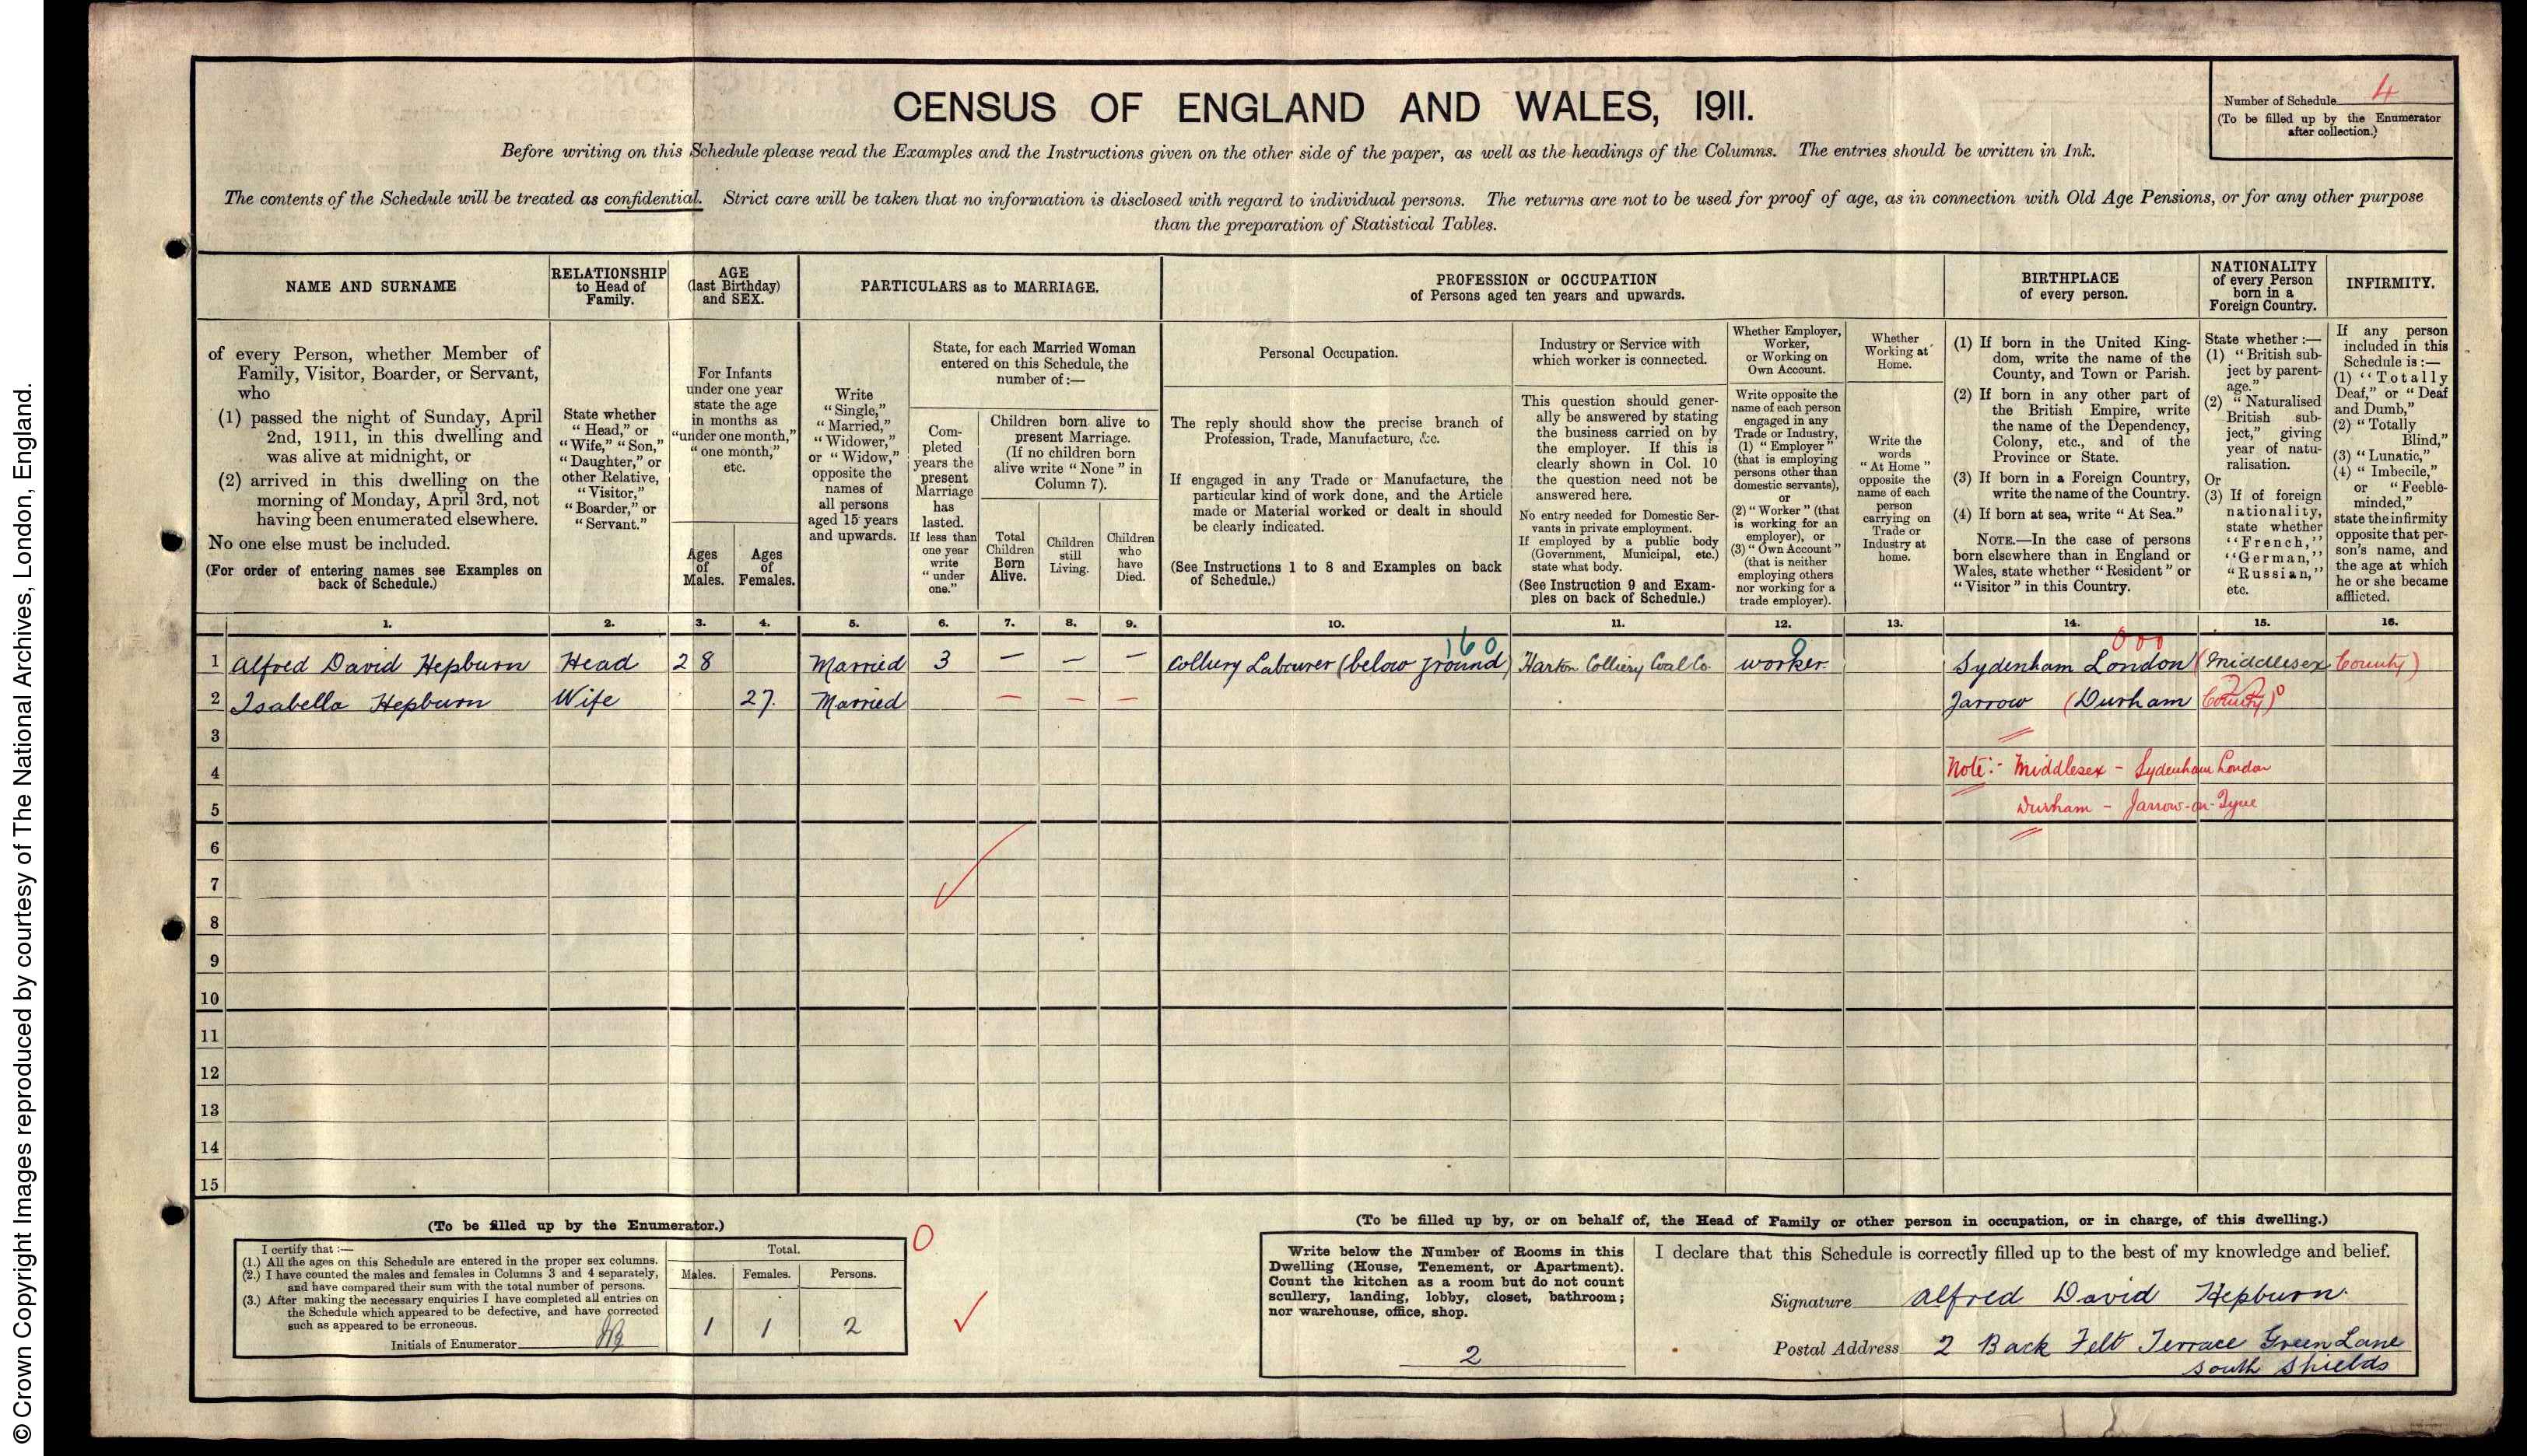 © Crown Copyright Images reproduced by courtesy of The National Archives, London, England.
CENSUS OF ENGLAND AND WALES, 1911.
Number of Schedule 4
(To be filled up by the Enumerator
after collection.)
Before writing on this Schedule please read the Examples and the Instructions given on the other side of the paper, as well as the headings of the Columns. The entries should be written in Ink.
The contents of the Schedule will be treated as confidential. Strict care will be taken that no information is disclosed with regard to individual persons. The returns are not to be used for proof of age, as in connection with Old Age Pensions, or for any other purpose
than the preparation of Statistical Tables.
NAME AND SURNAME
of every Person, whether Member of
Family, Visitor, Boarder, or Servant,
who
(1) passed the night of Sunday, April
2nd, 1911, in this dwelling and
was alive at midnight, or
(2) arrived in this dwelling on the
morning of Monday, April 3rd, not
having been enumerated elsewhere.
No one else must be included.
(For order of entering names see Examples on
back of Schedule.)
RELATIONSHIP
to Head of
Family.
State whether
"Head," or
"Wife," "Son,"
"Daughter," or
other Relative,
"Visitor,"
"Boarder," or
"Servant."
AGE
(last Birthday)
and SEX.
For Infants
under one year
state the age
in months as
"under one month,"
"one month,"
etc.
Ages
of
Males.
Ages
of
Females.
PARTICULARS as to MARRIAGE.
Write
"Single,"
"Married,"
"Widower,"
or "Widow,"
opposite the
names of
all persons
aged 15 years
and upwards.
State, for each Married Woman
entered on this Schedule, the
number of:—
Com-
pleted
years the
present
Marriage
has
lasted.
If less than
one year
write
"under
one."
Children born alive to
present Marriage.
(If no children born
alive write "None" in
Column 7).
Total
Children
Born
Alive.
Children
still
Living.
Children
who
have
Died.
PROFESSION or OCCUPATION
of Persons aged ten years and upwards.
Personal Occupation.
The reply should show the precise branch of
Profession, Trade, Manufacture, &c.
If engaged in any Trade or Manufacture, the
particular kind of work done, and the Article
made or Material worked or dealt in should
be clearly indicated.
(See Instructions 1 to 8 and Examples on back
of Schedule.)
Industry or Service with
which worker is connected.
This question should gener-
ally be answered by stating
the business carried on by
the employer. If this is
clearly shown in Col. 10
the question need not be
answered here.
No entry needed for Domestic Ser-
vants in private employment.
If employed by a public body
(Government, Municipal, etc.)
state what body.
(See Instruction 9 and Exam-
ples on back of Schedule.)
Whether Employer,
Worker,
or Working on
Own Account.
Write opposite the
name of each person
engaged in any
Trade or Industry,
(1) "Employer"
(that is employing
persons other than
domestic servants),
or
(2) "Worker" (that
is working for an
employer), or
(3) "Own Account"
(that is neither
employing others
nor working for a
trade employer).
Whether
Working at
Home.
Write the
words
"At Home"
opposite the
name of each
person
carrying on
Trade or
Industry at
home.
BIRTHPLACE
of every person.
(1) If born in the United King-
dom, write the name of the
County, and Town or Parish.
(2) If born in any other part of
the British Empire, write
the name of the Dependency,
Colony, etc., and of the
Province or State.
(3) If born in a Foreign Country,
write the name of the Country.
(4) If born at sea, write "At Sea."
NOTE.—In the case of persons
born elsewhere than in England or
Wales, state whether "Resident" or
"Visitor" in this Country.
NATIONALITY
of every Person
born in a
Foreign Country.
State whether:—
(1) "British sub-
ject by parent-
age."
(2) "Naturalised
British sub-
ject," giving
year of natu-
ralisation.
Or
(3) If of foreign
nationality,
state whether
"French,"
"German,"
"Russian,"
etc.
INFIRMITY.
If any person
included in this
Schedule is:—
(1) "Totally
Deaf," or "Deaf
and Dumb,"
(2) "Totally
Blind,"
(3) "Lunatic,"
(4) "Imbecile,"
or "Feeble-
minded,"
state the infirmity
opposite that per-
son's name, and
the age at which
he or she became
afflicted.
1. 2. 3. 4. 5. 6. 7. 8. 9. 10. 11. 12. 13. 14. 15. 16.
160 0 000
1 Alfred David Hepburn Head 28 Married 3 — — — Colliery Labourer (below ground) Harton Colliery Coal Co. worker Sydenham London (Middlesex County)
2 Isabella Hepburn Wife 27. Married — — — Jarrow (Durham County)
3
4 Note:- Middlesex - Sydenham London
5 Durham - Jarrow-on-Tyne
6
7
8
9
10
11
12
13
14
15
(To be filled up by the Enumerator.)
I certify that:—
(1.) All the ages on this Schedule are entered in the proper sex columns.
(2.) I have counted the males and females in Columns 3 and 4 separately,
and have compared their sum with the total number of persons.
(3.) After making the necessary enquiries I have completed all entries on
the Schedule which appeared to be defective, and have corrected
such as appeared to be erroneous.
Initials of Enumerator
Total.
Males. Females. Persons.
1 1 2
0
(To be filled up by, or on behalf of, the Head of Family or other person in occupation, or in charge, of this dwelling.)
Write below the Number of Rooms in this
Dwelling (House, Tenement, or Apartment).
Count the kitchen as a room but do not count
scullery, landing, lobby, closet, bathroom;
nor warehouse, office, shop.
2
I declare that this Schedule is correctly filled up to the best of my knowledge and belief.
Signature Alfred David Hepburn.
Postal Address 2 Back Felt Terrace Green Lane
South Shields